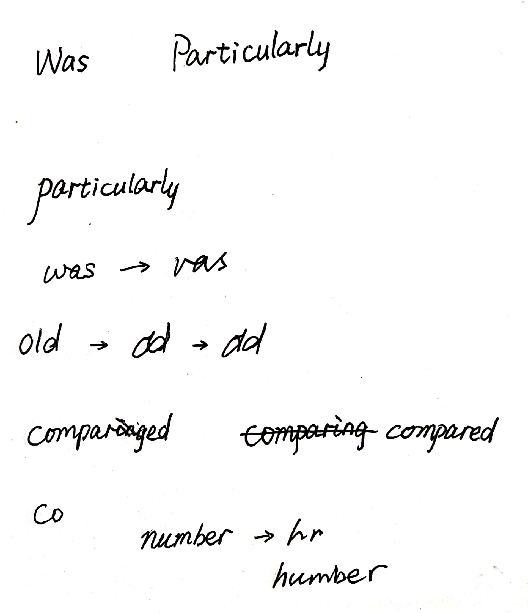 Was Particularly
particularly
was → vas
old → dd → dd
compared comparing compared
Co
number → hr
humber